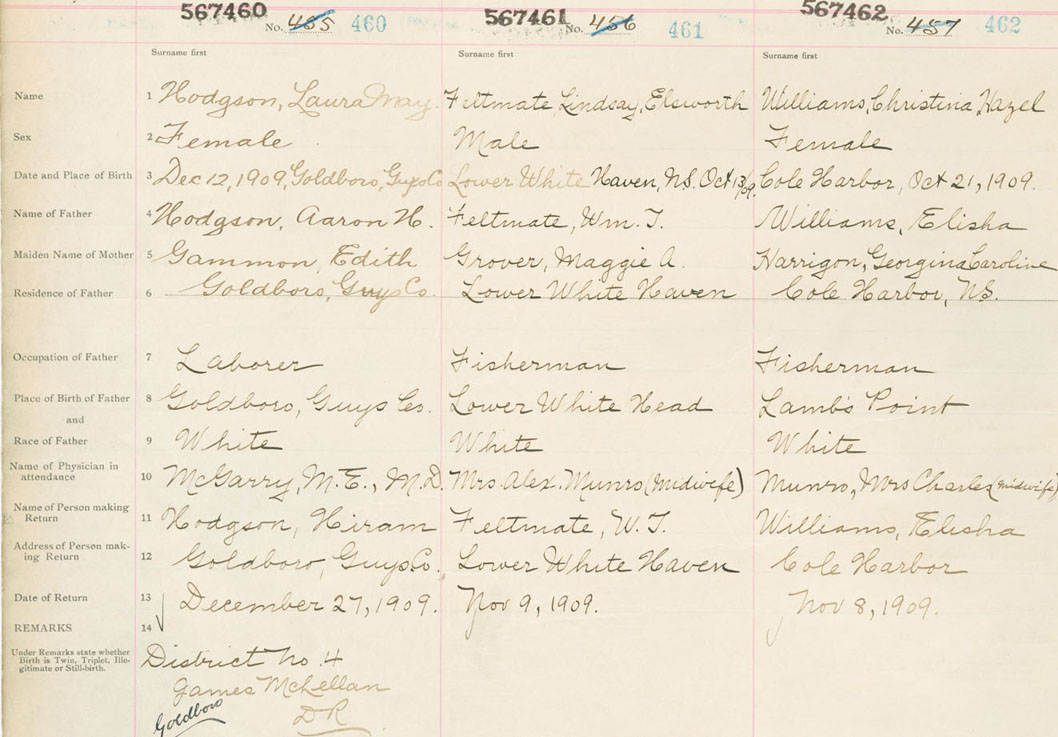 567460 567461 567462
No. 455 460 No. 456 461 No. 457 462
Surname first Surname first Surname first
Name 1 Hodgson, Laura May. Feltmate Lindsay, Elsworth Williams, Christina Hazel
Sex 2 Female Male Female
Date and Place of Birth 3 Dec 12, 1909, Goldboro, Guys Co Lower White Haven, N.S. Oct 13/09. Cole Harbor, Oct 21, 1909.
Name of Father 4 Hodgson, Aaron H. Feltmate, Wm. T. Williams, Elisha
Maiden Name of Mother 5 Gammon, Edith Grover, Maggie A. Harrigon, Georgina Caroline
Residence of Father 6 Goldboro, Guys Co. Lower White Haven Cole Harbor, N.S.
Occupation of Father 7 Laborer Fisherman Fisherman
Place of Birth of Father 8 Goldboro, Guys Co. Lower White Head Lamb's Point
and
Race of Father 9 White White White
Name of Physician in
attendance 10 McGarry, M. E., M.D. Mrs. Alex. Munro (midwife) Munro, Mrs Charles (midwife)
Name of Person making
Return 11 Hodgson, Hiram Feltmate, W. T. Williams, Elisha
Address of Person mak-
ing Return 12 Goldboro, Guys. Co. Lower White Haven Cole Harbor
Date of Return 13 December 27, 1909. Nov 9, 1909. Nov 8, 1909.
REMARKS 14
Under Remarks state whether
Birth is Twin, Triplet, Ille-
gitimate or Still-birth.
District No. 4
James McLellan
Goldboro D R